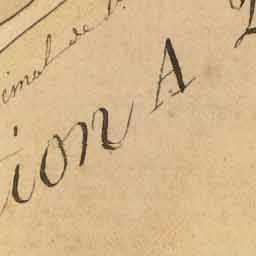 cimal de
tion A